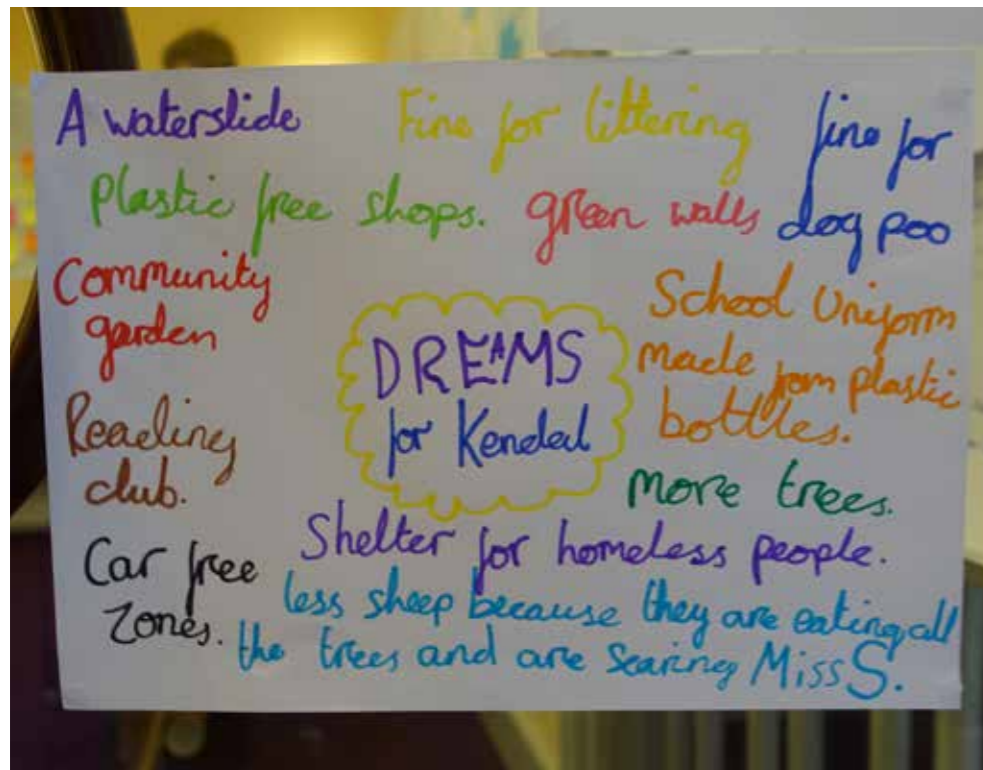 A waterslide
Fine for littering
fine for
dog poo
plastic free shops.
green walls
Community
garden
School Uniform
made from plastic
bottles.
DREAMS
for Kendal
Reading
club.
more trees.
Shelter for homeless people.
Car free
Zones.
less sheep because they are eating all
the trees and are scaring Miss S.